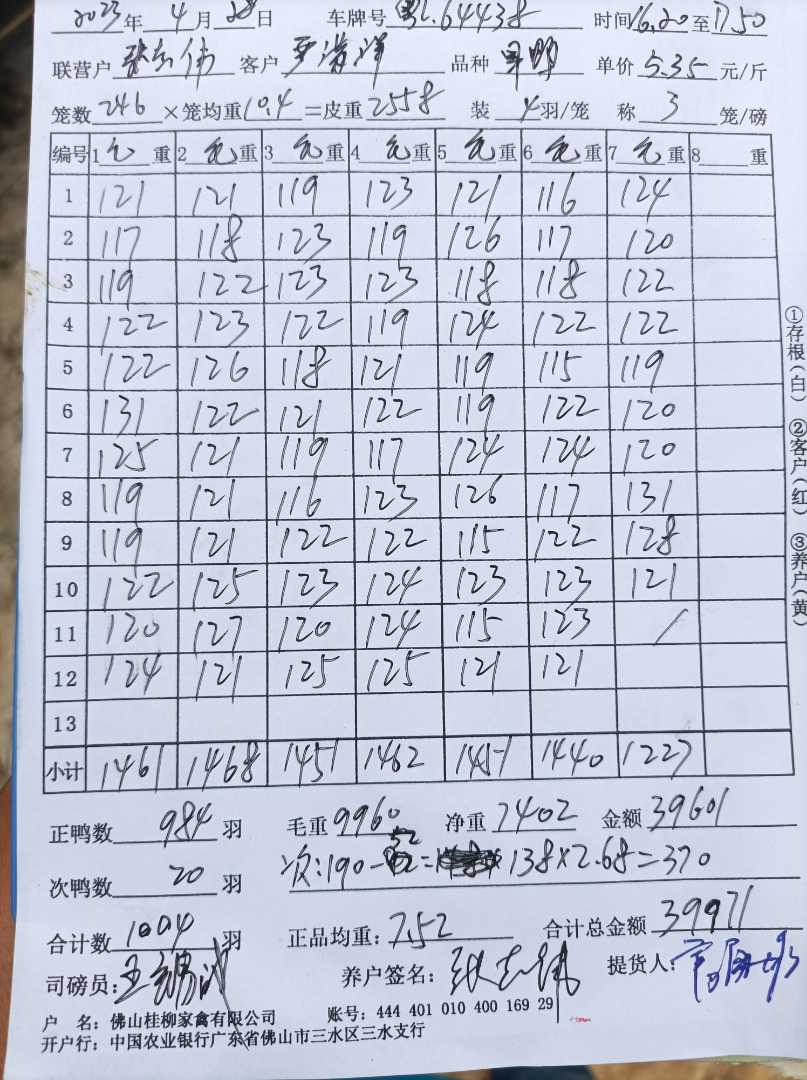 2023年 4月 28日 车牌号 粤L.64438 时间16.20至17.50
联营户 张志伟 客户 品种 单价 5.35 元/斤
笼数 246 ×笼均重10.4=皮重2558 装 4羽/笼 称 3 笼/磅
编号 1 毛重 2 毛重 3 毛重 4 毛重 5 毛重 6 毛重 7 毛重 8 重
1 121 121 119 123 121 116 124
2 117 118 123 119 126 117 120
3 119 122 123 123 118 118 122
4 122 123 122 119 124 122 122
5 122 126 118 121 119 115 119
6 131 122 121 122 119 122 120
7 125 121 119 117 124 124 120
8 119 121 116 123 126 117 131
9 119 121 122 122 115 122 128
10 122 125 123 124 123 123 121
11 120 127 120 124 115 123 /
12 124 121 125 125 121 121
13
小计 1461 1468 1451 1462 1451 1440 1227
正鸭数 984 羽 毛重 9960 净重 7402 金额 39601
次鸭数 20 羽 次:190-52=138×2.68=370
合计数 1004 羽 正品均重:7.52 合计总金额 39971
司磅员: 养户签名:张志伟 提货人:
户 名:佛山桂柳家禽有限公司 账号:444 401 010 400 169 29
开户行:中国农业银行广东省佛山市三水区三水支行
①存根(白) ②客户(红) ③养户(黄)